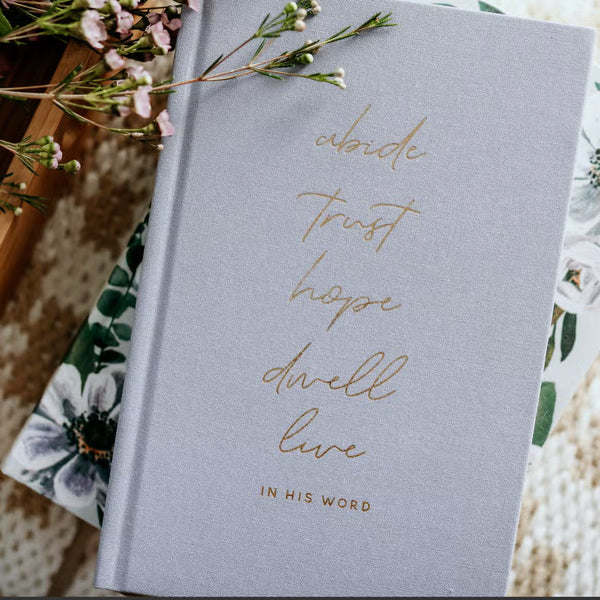 abide
trust
hope
dwell
live
IN HIS WORD